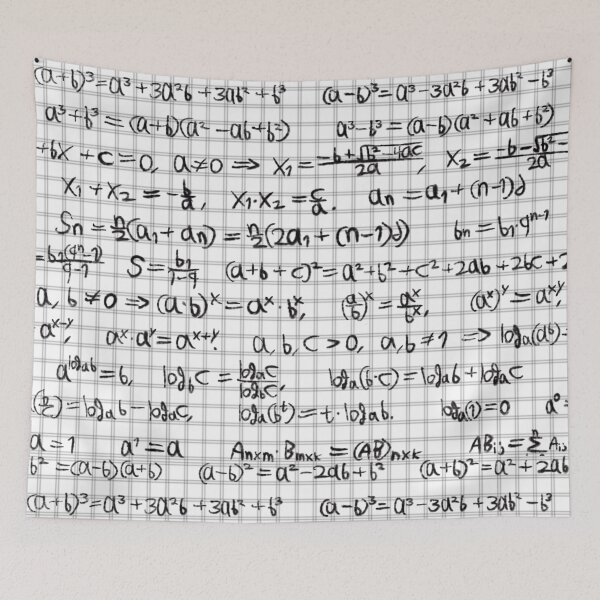 (a+b)³=a³+3a²b+3ab²+b³ (a-b)³=a³-3a²b+3ab²-b³
a³+b³=(a+b)(a²-ab+b²) a³-b³=(a-b)(a²+ab+b²)
+bx+c=0, a≠0 ⇒ x₁=(-b+√(b²-4ac))/2a, x₂=(-b-√b²-)/2a
x₁+x₂=-b/a, x₁·x₂=c/a. aₙ=a₁+(n-1)d
Sₙ=n/2(a₁+aₙ)=n/2(2a₁+(n-1)d) bₙ=b₁·qⁿ⁻¹
=b₁(qⁿ-1)/(q-1) S=b₁/(1-q) (a+b+c)²=a²+b²+c²+2ab+2bc+2
a,b≠0 ⇒ (a·b)ˣ=aˣ·bˣ, (a/b)ˣ=aˣ/bˣ, (aˣ)ʸ=aˣʸ,
aˣ⁻ʸ, aˣ·aʸ=aˣ⁺ʸ. a,b,c>0, a,b≠1 ⇒ logₐ(aᵇ)=
a^(logₐb)=b, log_b c=logₐc/log_b c, logₐ(b·c)=logₐb+logₐc
(b/c)=logₐb-logₐc, logₐ(bᵗ)=t·logₐb. logₐ(1)=0 a⁰=
a=1 a¹=a Aₙₓₘ·Bₘₓₖ=(AB)ₙₓₖ ABᵢⱼ=Σⁿ Aᵢⱼ
b²=(a-b)(a+b) (a-b)²=a²-2ab+b² (a+b)²=a²+2ab
(a+b)³=a³+3a²b+3ab²+b³ (a-b)³=a³-3a²b+3ab²-b³